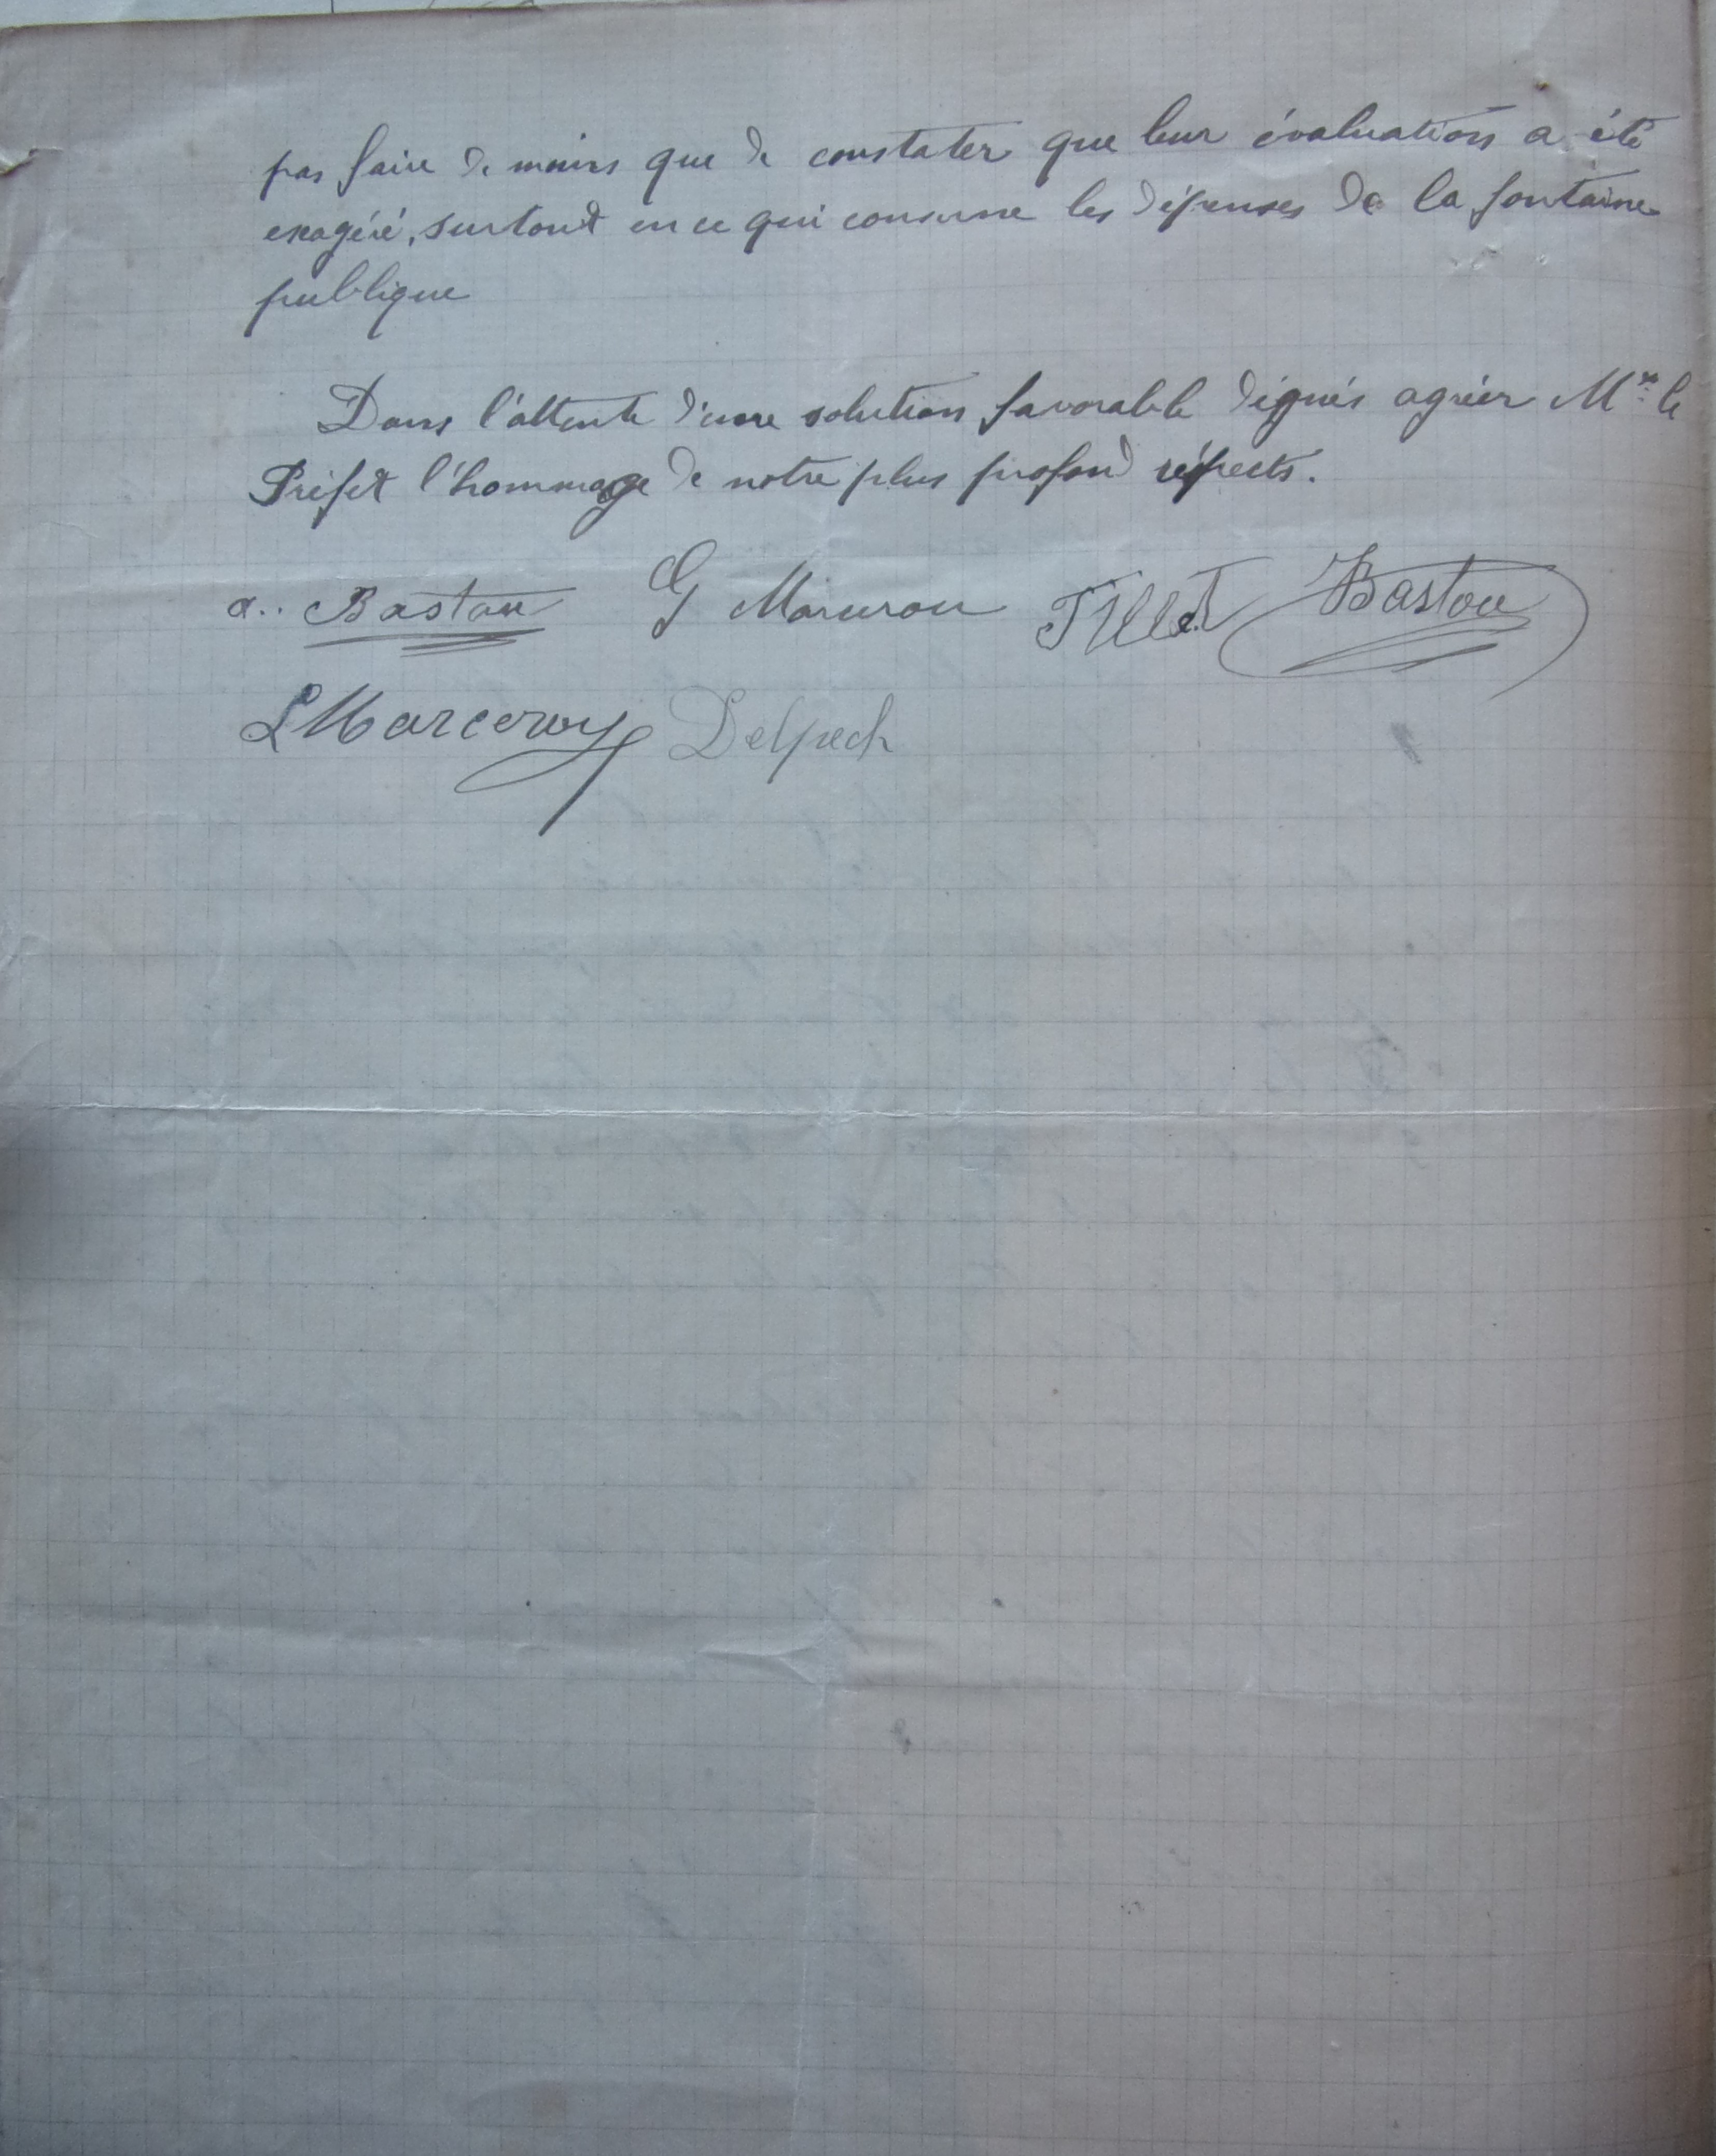 pas faire de moins que de constater que leur évaluation a été
exagéré, surtout en ce qui concerne les dépenses de la fontaine
publique
Dans l'attente d'une solution favorable dignés agréer Mr le
Préfet l'hommage de notre plus profond réspects.
a.. Bastou G Tillet Bastou
L Marcerou Delpech